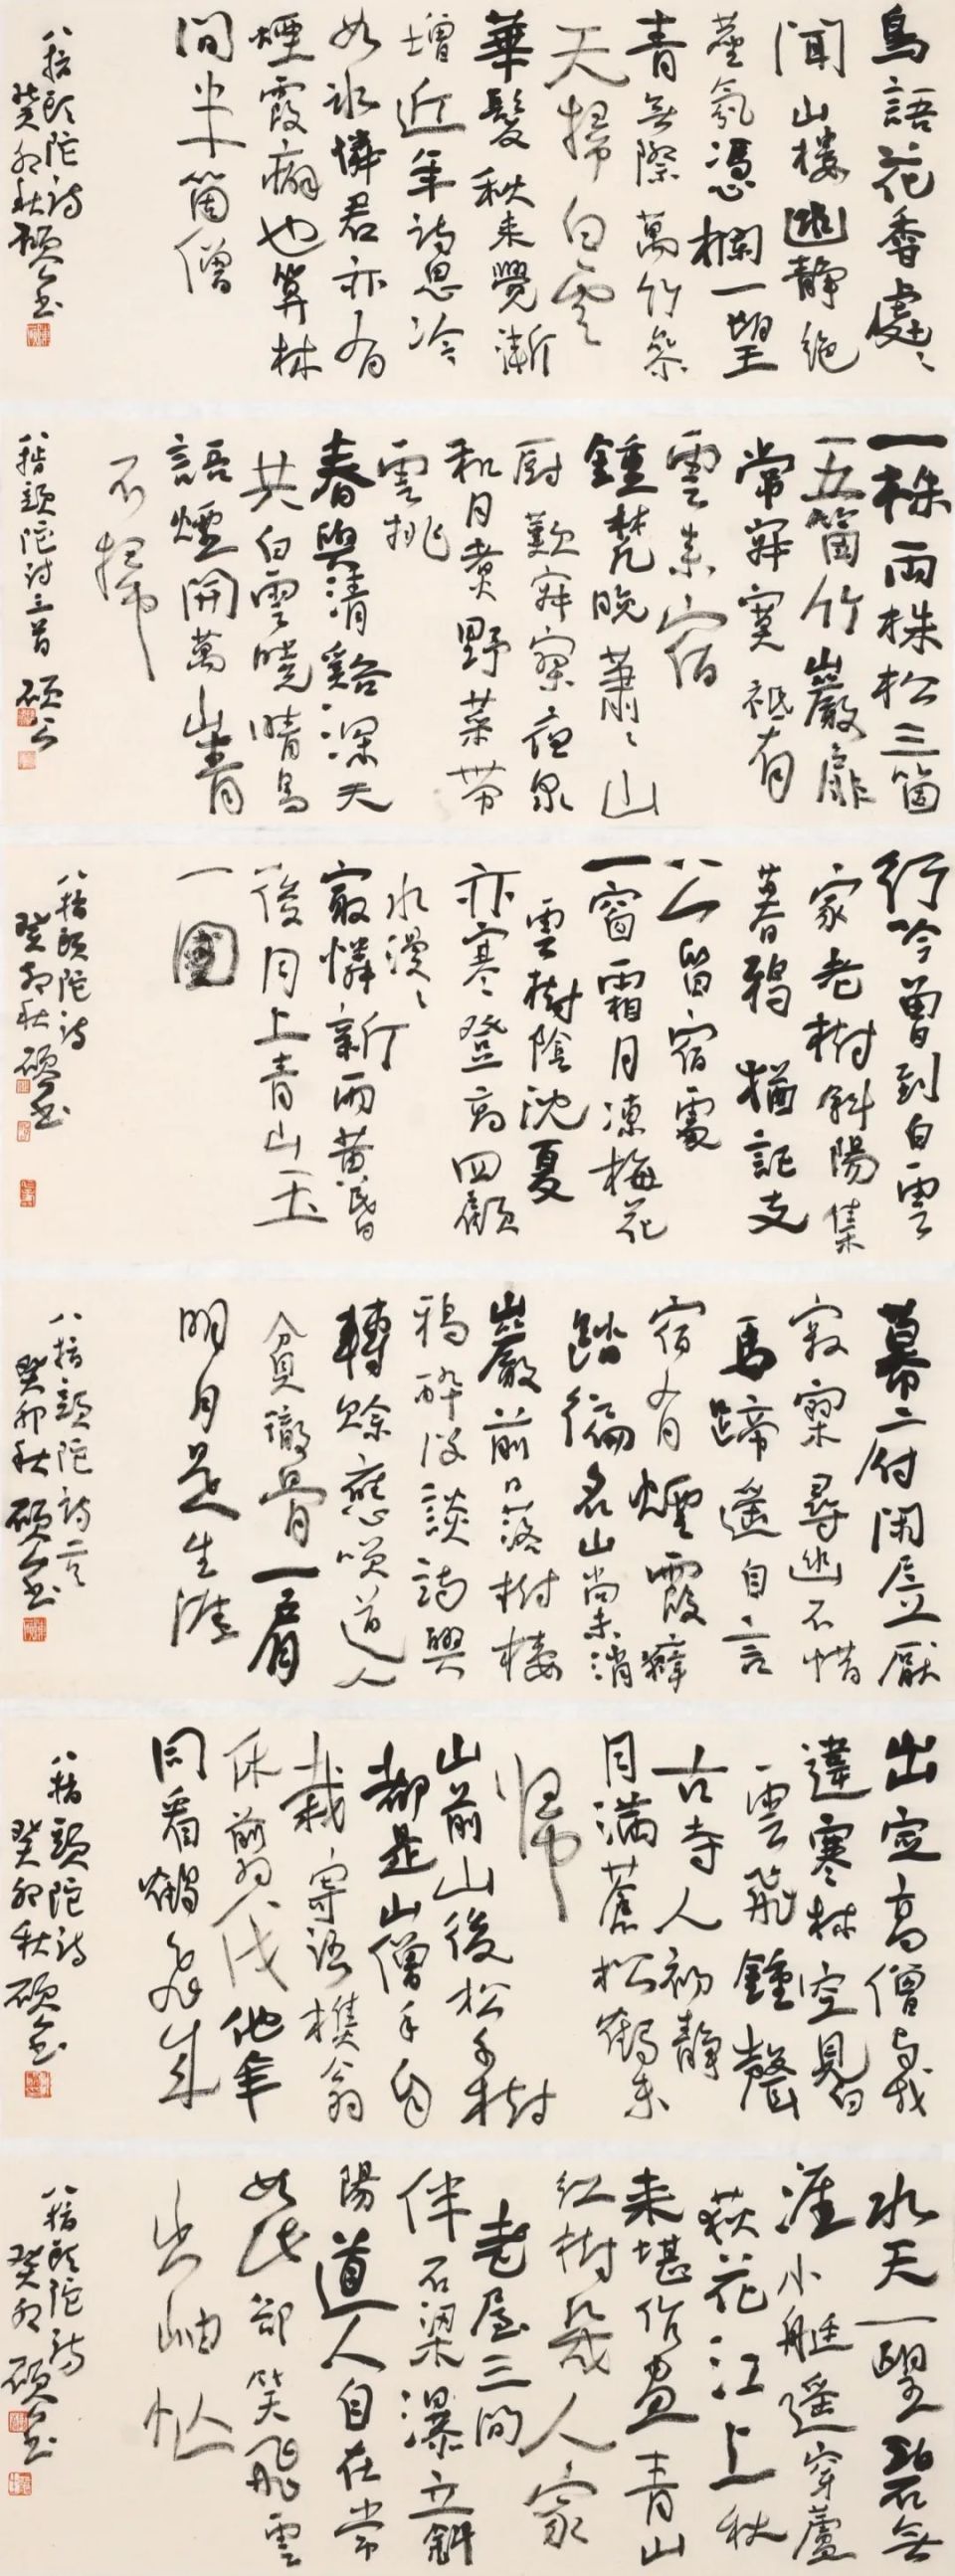 鳥語花香處〻
聞山樓幽靜絕
塵氛憑欄一望
青無際萬竹參
天掃白雲
華髮秋來覺漸
增近年詩思冷
如冰憐君亦有
煙霞癖也算林
間半箇僧
八指頭陀詩
癸卯秋碩公書
一株兩株松三箇
五箇竹巖扉
常寂寞祇有
雲來宿
鐘梵晚蕭〻山
厨歎寂寥夜泉
和月煮野菜帶
雲挑
春與清谿深天
共白雲曉晴鳥
語煙開萬山青
不掃
八指頭陀詩三首 碩公
行吟曾到白雲
家老樹斜陽集
暮鴉猶記支
公留宿處
一窗霜月凍梅花
雲樹陰沈夏
亦寒登高四顧
水漫〻
最憐新雨黃昏
後月上青山玉
一團
八指頭陀詩
癸卯秋碩公書
幕府閑居厭
寂寥尋幽不惜
馬蹄遙自言
宿有煙霞癖
踏徧名山尚未消
巖前日落樹棲
鴉醉後談詩興
轉賒應笑道人
貧徹骨一肩
明月是生涯
八指頭陀詩二首
癸卯秋碩公書
出定高僧與我
違寒林空見白
雲飛鐘聲
古寺人初靜
月滿蒼松鶴未
歸
山前山後松千樹
都是山僧手自
栽寄語樵翁
休翦伐他年
同看鶴飛來
八指頭陀詩
癸卯秋碩公書
水天一望碧無
涯小艇遙穿蘆
荻花江上秋
來堪作畫青山
紅樹幾人家
老屋三間
伴石梁瀑立斜
陽道人自在常
如此卻笑飛雲
出岫忙
八指頭陀詩
癸卯碩公書